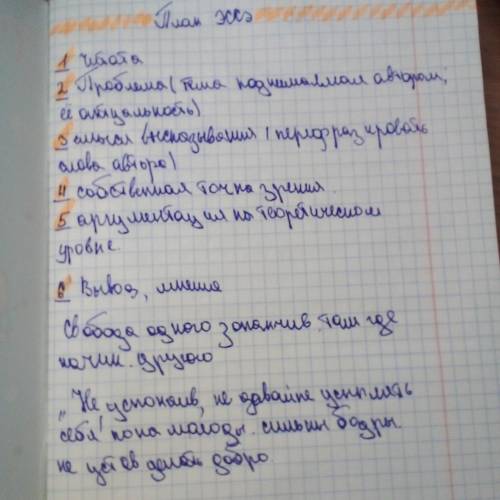 План эссэ
1 Цитата
2 Проблема (тема поднимаемая автором,
её актуальность)
3 смысл высказывания (перефразировать
слова автора)
4 собственная точка зрения.
5 аргументация на теоретическом
уровне.
6 Вывод, мнение
Свобода одного заканчив. там где
начин. другого
„Не успокаив, не давайте усыплять
себя! пока молоды. сильны бодры
не устав делать добро.